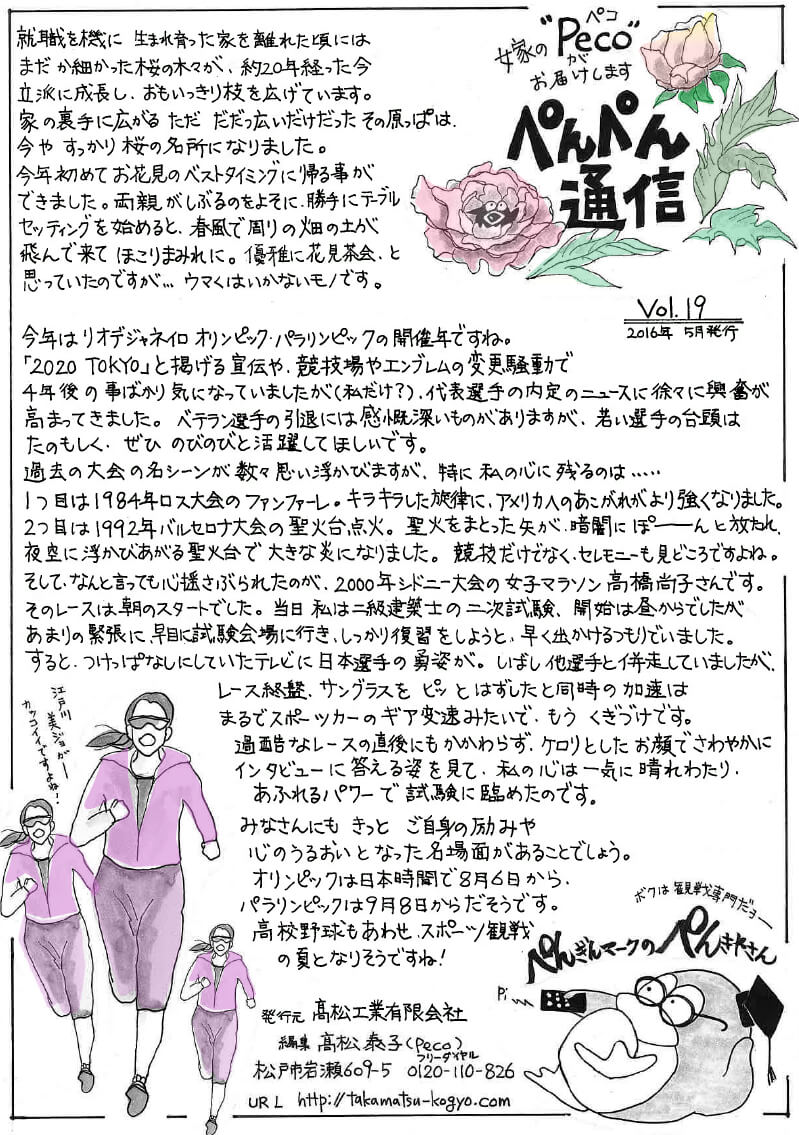 女家の"Peco"が
ペコ
お届けします
ぺんぺん
通信
就職を機に 生まれ育った家を離れた頃には
まだ か細かった桜の木々が、約20年経った今
立派に成長し、おもいっきり枝を広げています。
家の裏手に広がる ただ だだっ広いだけだった その原っぱは、
今や すっかり 桜の名所になりました。
今年初めて お花見のベストタイミングに帰る事が
できました。両親がしぶるのをよそに、勝手にテーブル
セッティングを始めると、春風で周りの畑の土が
飛んで来て ほこりまみれに。優雅に花見茶会、と
思っていたのですが… ウマくはいかないモノです。
Vol.19
2016年 5月発行
今年はリオデジャネイロ オリンピック・パラリンピックの開催年ですね。
「2020 TOKYO」と掲げる宣伝や、競技場やエンブレムの変更騒動で
4年後の事ばかり気になっていましたが(私だけ?)、代表選手の内定のニュースに徐々に興奮が
高まってきました。 ベテラン選手の引退には感慨深いものがありますが、若い選手の台頭は
たのもしく、ぜひ のびのびと活躍してほしいです。
過去の大会の名シーンが数々思い浮かびますが、特に私の心に残るのは‥‥‥
1つ目は1984年ロス大会のファンファーレ。キラキラした旋律に、アメリカ人のあこがれがより強くなりました。
2つ目は1992年バルセロナ大会の聖火台点火。聖火をまとった矢が、暗闇にぽーーんと放たれ、
夜空に浮かびあがる聖火台で大きな炎になりました。競技だけでなく、セレモニーも見どころですよね。
そして、なんと言っても心揺さぶられたのが、2000年シドニー大会の女子マラソン高橋尚子さんです。
そのレースは朝のスタートでした。当日私は二級建築士の二次試験、開始は昼からでしたが
あまりの緊張に、早目に試験会場に行き、しっかり復習をしようと、早く出かけるつもりでいました。
すると、つけっぱなしにしていたテレビに日本選手の勇姿が。しばし他選手と併走していましたが、
レース終盤、サングラスを ピッ とはずしたと同時の加速は
まるでスポーツカーのギア変速みたいで、もう くぎづけです。
過酷なレースの直後にもかかわらず、ケロリとしたお顔でさわやかに
インタビューに答える姿を見て、私の心は一気に晴れわたり、
あふれるパワーで試験に臨めたのです。
みなさんにも きっと ご自身の励みや
心のうるおいとなった名場面があることでしょう。
オリンピックは日本時間で8月6日から、
パラリンピックは9月8日からだそうです。
高校野球もあわせ、スポーツ観戦
の夏となりそうですね!
江戸川
美ジョガー
カッコイイですよね!
ボクは観戦専門だヨー
ぺんぎんマークのぺんきやさん
Pi
発行元 髙松工業有限会社
編集 髙松泰子(Peco)
フリーダイヤル
松戸市岩瀬609-5 0120-110-826
URL http://takamatsu-kogyo.com